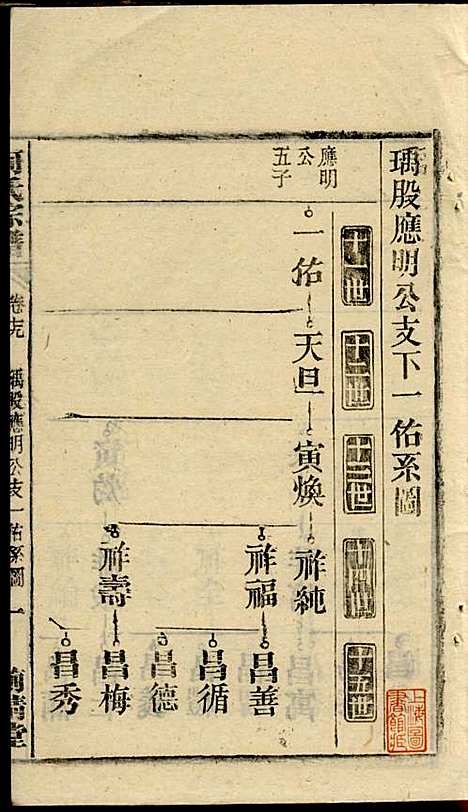 瑀股應明公支下一佑系圖
十一世
十二世
十三世
十四世
十五世
應明
公
五子
一佑
天旦
寅煥
祥純
祥福
祥壽
昌善
昌循
昌德
昌梅
昌秀
氏宗譜
瑀股應明公支一佑系圖
一
上海圖
書館藏